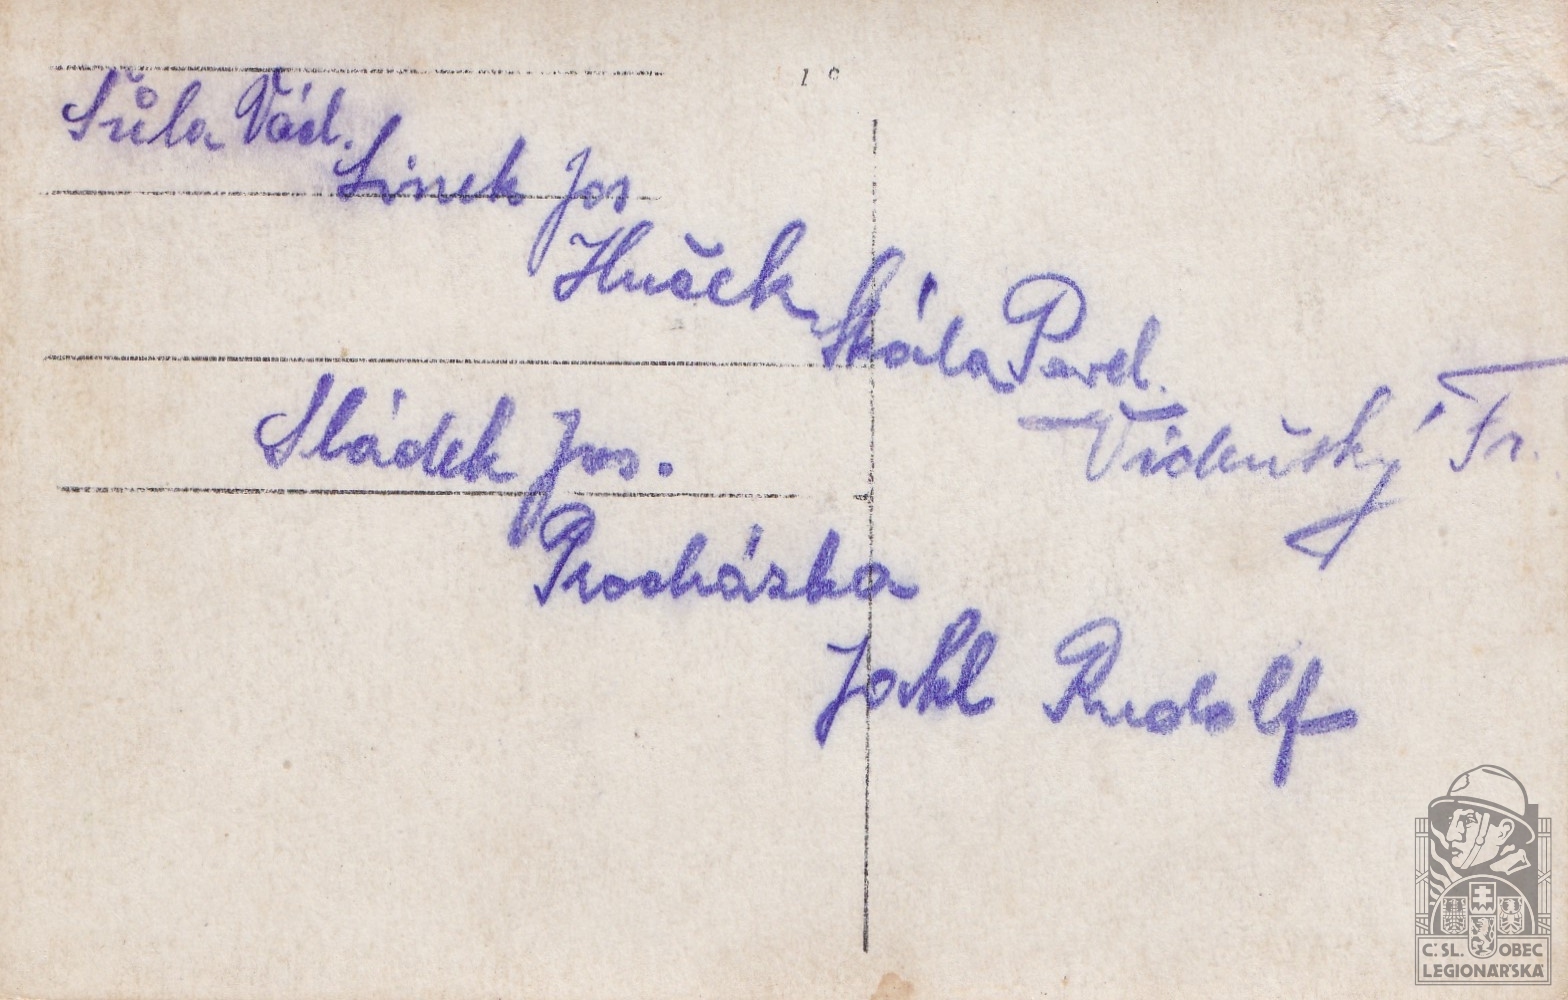 1°
Sůla Vád.
Linek Jos
Hnáček
Skála Pavel.
Fr.
Sládek Jos.
Procházka
Jakl Rudolf
Č.SL. OBEC
LEGIONÁŘSKÁ